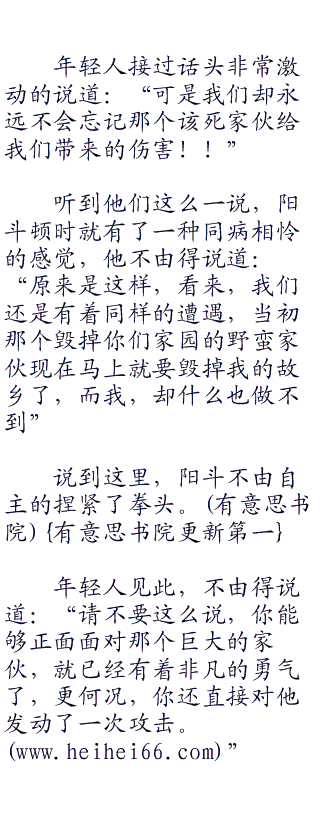 年轻人接过话头非常激
动的说道：“可是我们却永
远不会忘记那个该死家伙给
我们带来的伤害！！”
听到他们这么一说，阳
斗顿时就有了一种同病相怜
的感觉，他不由得说道：
“原来是这样，看来，我们
还是有着同样的遭遇，当初
那个毁掉你们家园的野蛮家
伙现在马上就要毁掉我的故
乡了，而我，却什么也做不
到”
说到这里，阳斗不由自
主的捏紧了拳头。(有意思书
院){有意思书院更新第一}
年轻人见此，不由得说
道：“请不要这么说，你能
够正面面对那个巨大的家
伙，就已经有着非凡的勇气
了，更何况，你还直接对他
发动了一次攻击。
(www.heihei66.com)”